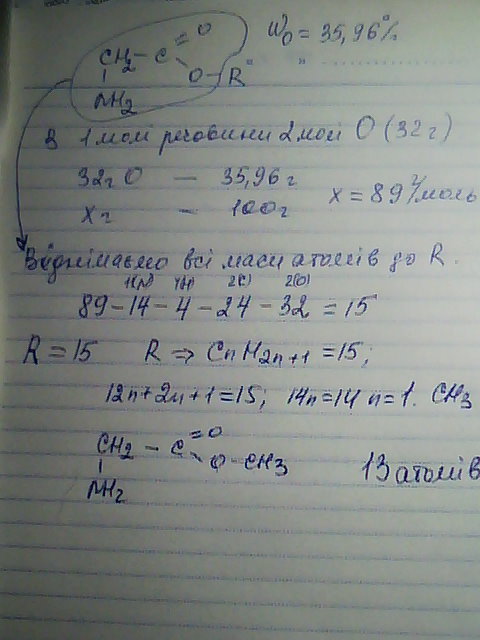 W₀ = 35,96%
CH₂ – C = O
O – R
NH₂
В 1 молі речовини 2 моль O (32 г)
32г O – 35,96 г
x г – 100г
x = 89 г/моль
Віднімаємо всі маси атомів до R.
1(N) 4(H) 2(C) 2(O)
89 – 14 – 4 – 24 – 32 = 15
R = 15 R ⇒ CnH2n+1 = 15;
12n + 2n + 1 = 15; 14n = 14 n = 1. CH₃
CH₂ – C = O
O – CH₃
NH₂
13 атомів